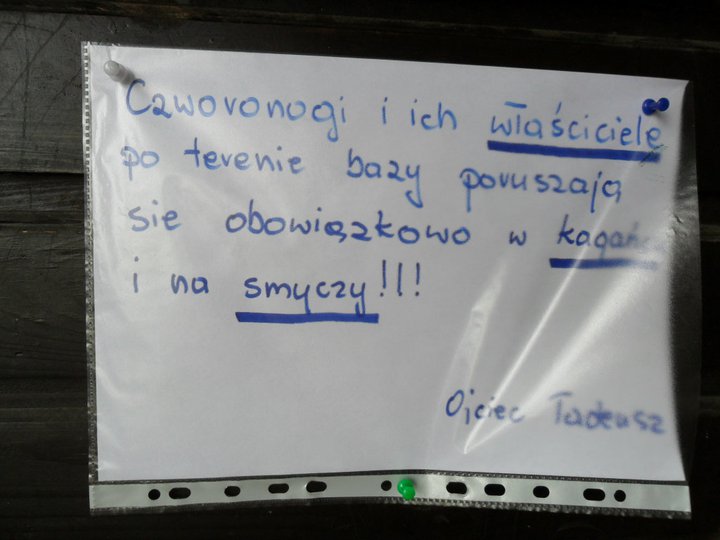 Czworonogi i ich właściciele
po terenie bazy poruszają
sie obowiązkowo w kagańcu
i na smyczy!!!
Ojciec Tadeusz